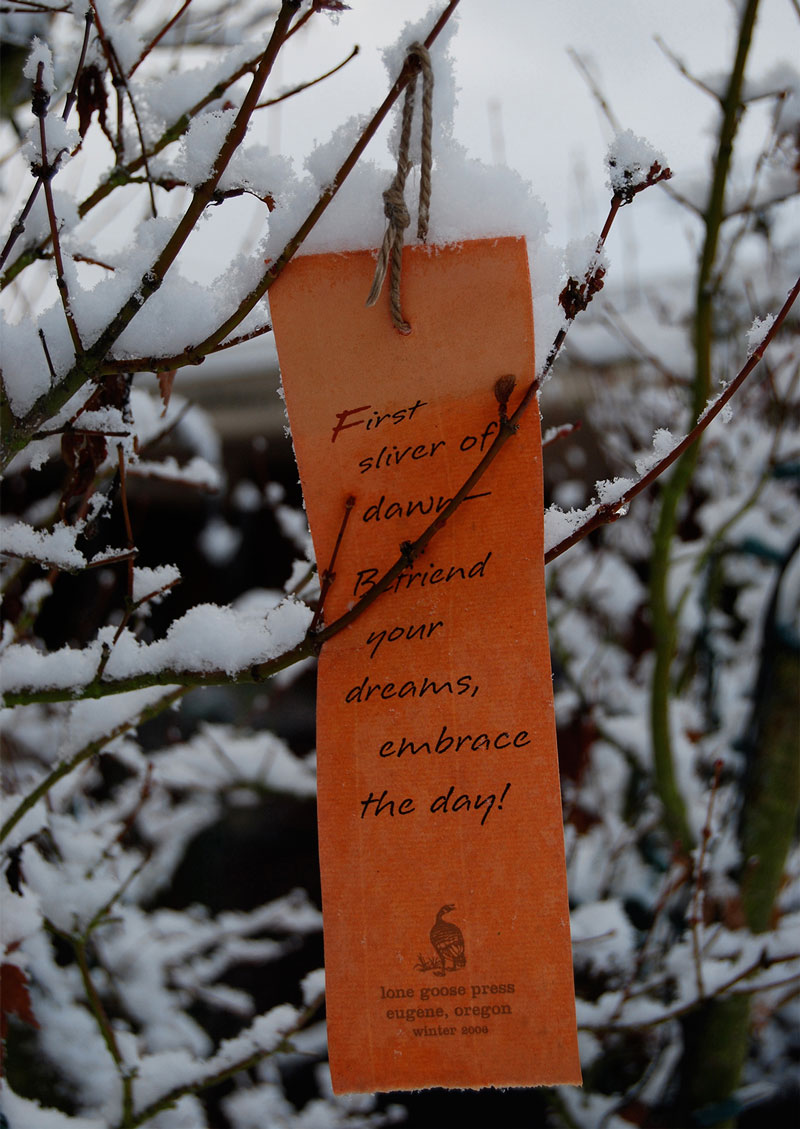 First
sliver of
dawn—
Befriend
your
dreams,
embrace
the day!
lone goose press
eugene, oregon
winter 2006